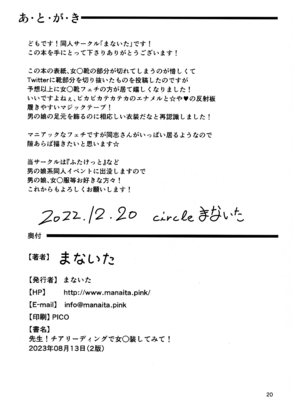 あ・と・が・き
どもです！同人サークル「まないた」です！
この本を手にとって下さりありがとうございます！
この本の表紙、女〇靴の部分が切れてしまうのが惜しくて
Twitterに靴部分を切り抜いたものを投稿したのですが
予想以上に女〇靴フェチの方が居て嬉しくなりました！
いいですよねぇ、ピカピカテカテカのエナメルと☆や♥の反射板
履きやすいマジックテープ！
男の娘の足元を飾るのに相応しい衣装だなと再認識しました！
マニアックなフェチですが同志さんがいっぱい居るようなので
隙あらば描きたいと思います☆
当サークルは『ふたけっと』など
男の娘系同人イベントに出没しますので
男の娘、女〇服等お好きな方々！
これからもよろしくお願いします！
2022.12.20 circle まないた
奥付
【著者】 まないた
【発行者】 まないた
【HP】 http://www.manaita.pink/
【E-mail】 info@manaita.pink
【印刷】PICO
【書名】
先生！チアリーディングで女〇装してみて！
2023年08月13日(2版)
20